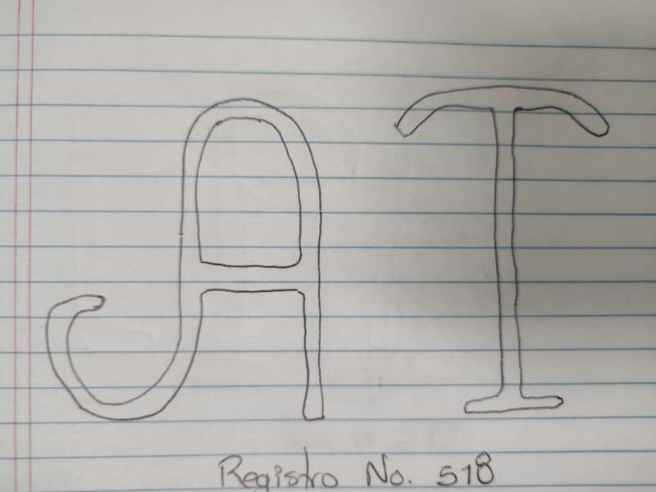 AT
Registro No. 518